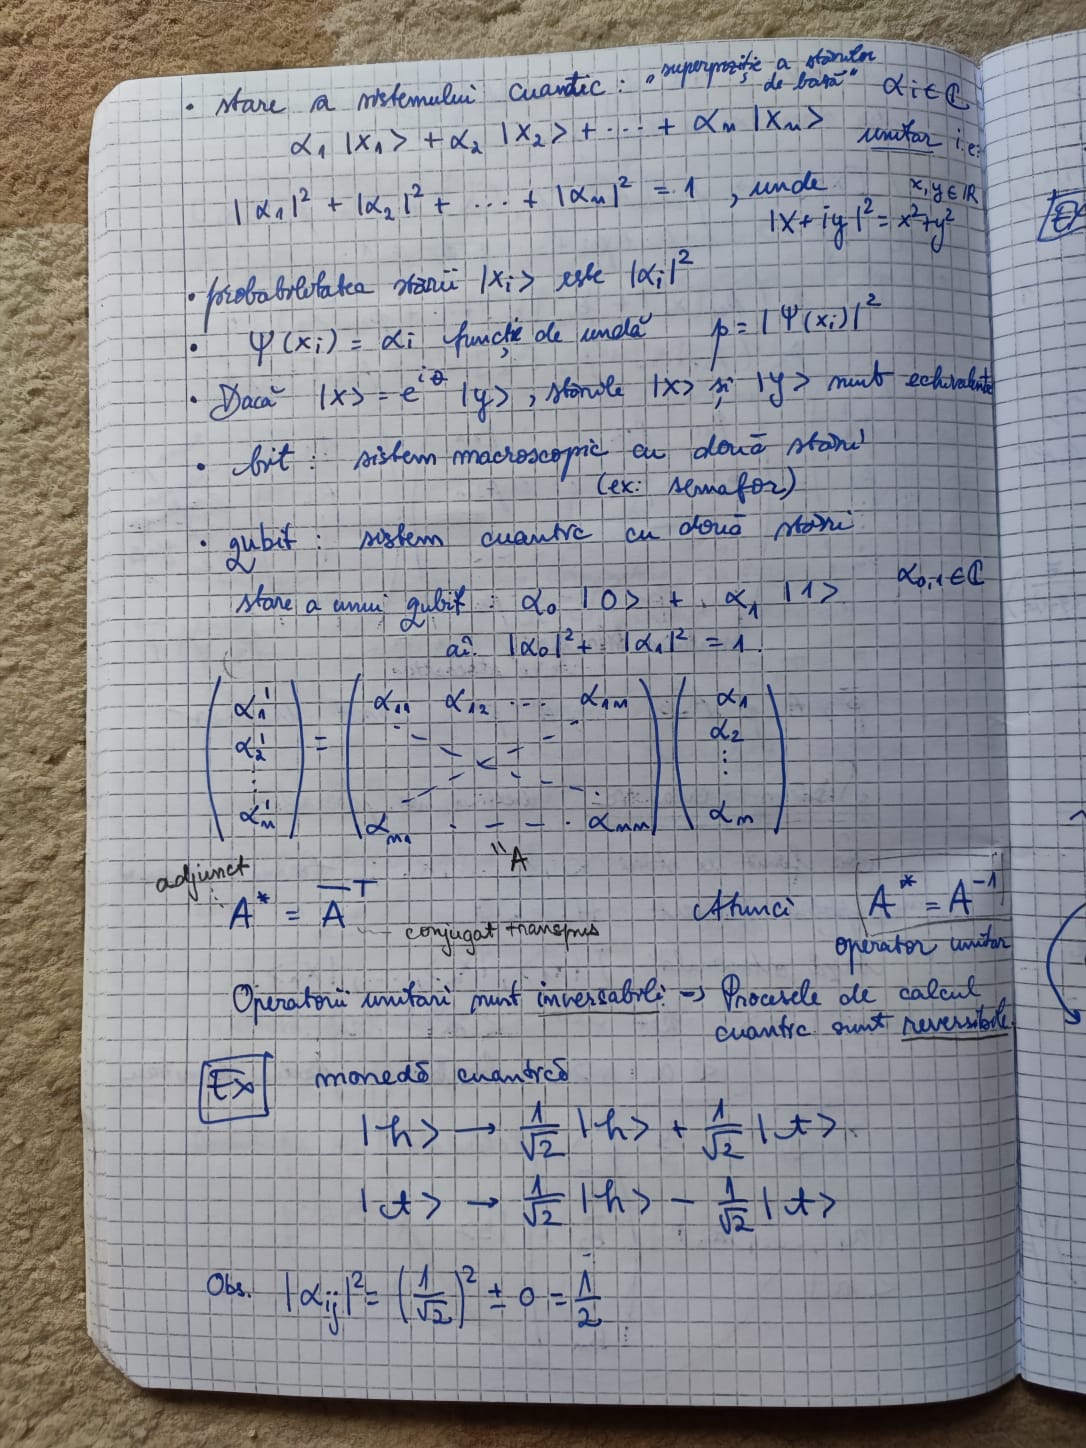 • stare a sistemului cuantic: „superpoziție a stărilor
de bază” αi ∈ ℂ
α₁ |x₁> + α₂ |x₂> + ··· + αₙ |xₙ> unitar i.e.
|α₁|² + |α₂|² + ··· + |αₙ|² = 1 , unde x,y ∈ ℝ
|x+iy|² = x²+y²
• probabilitatea stării |xᵢ> este |αᵢ|²
• Ψ(xᵢ) = αᵢ funcție de undă p = |Ψ(xᵢ)|²
• Dacă |x> = e^{iθ} |y>, stările |x> și |y> sunt echivalente
• bit: sistem macroscopic cu două stări
(ex: semafor)
• qubit: sistem cuantic cu două stări
stare a unui qubit: α₀ |0> + α₁ |1> α₀,₁ ∈ ℂ
aî. |α₀|² + |α₁|² = 1.
(α₁' α₂' ⋮ αₙ') = (α₁₁ α₁₂ ··· α₁ₙ αₙ₁ · – – · αₙₙ) (α₁ α₂ ⋮ αₙ)
"A
adjunct
A* = A̅ᵀ conjugat transpus Atunci A* = A⁻¹
operator unitar
Operatorii unitari sunt inversabili → Procesele de calcul
cuantic sunt reversibile.
Ex monedă cuantică
|h> → 1/√2 |h> + 1/√2 |t>
|t> → 1/√2 |h> − 1/√2 |t>
Obs. |αᵢⱼ|² = (1/√2)² ± 0 = 1/2